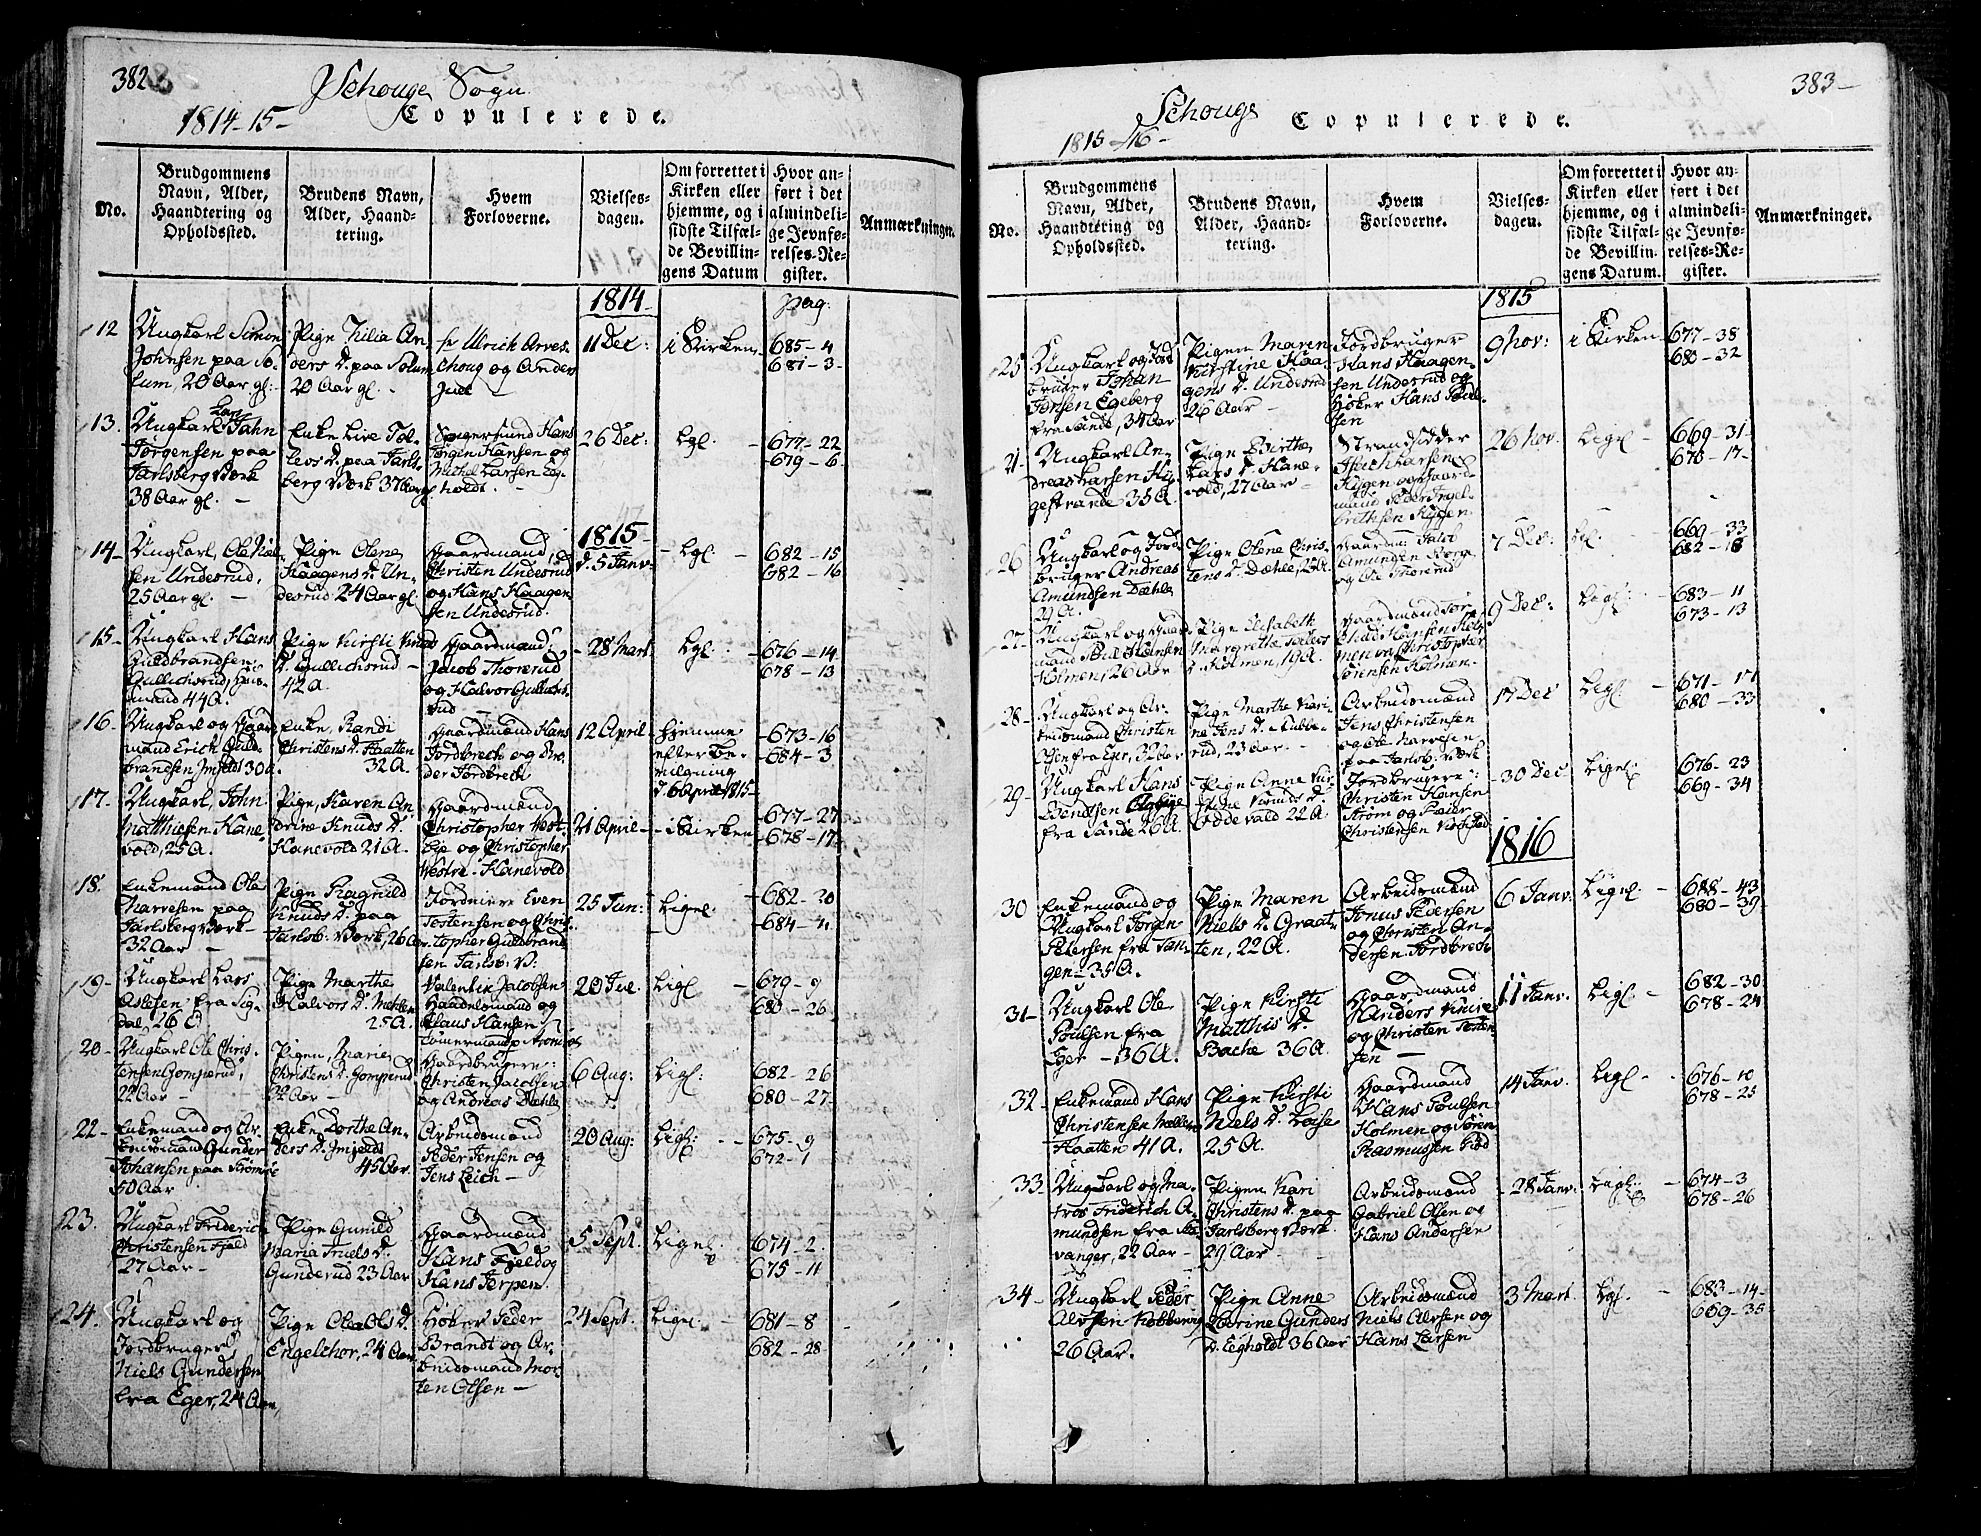 382
Schouge Sogn
1814-15-
Copulerede.
No.
Brudgommens
Navn, Alder,
Haandtering og
Opholdssted.
Brudens Navn,
Alder, Haand-
tering.
Hvem
Forloverne.
Vielses-
dagen.
Om forrettet i
Kirken eller
hjemme, og i
sidste Tilfæl-
de Bevillin-
gens Datum
Hvor an-
ført i det
almindeli-
ge Jevnfø-
relses-Re-
gister.
Anmærkninger.
1814
pag:
12
Ungkarl Simon
Johnsen paa So-
lum, 20 Aar gl:
Pige Kilia An-
ders D. paa Solum
20 Aar gl.
Hr Ulrich Arves-
choug og Anders
11 Dec:
i Kirken
685-4
681-3
13.
Ungkarl Lars John
Jörgensen paa
Jarlsberg Værk
38 Aar gl.
Enke Live Tol-
levs D. paa Jarls-
berg Værk 37 Aar gl
Hans
Jörgen Hansen og
Michel Larsen Eg-
holdt.
26 Dec:
Lgl.
677-22
679-6
1815
14-
Ungkarl, Ole
sen Undesrud,
25 Aar gl.
Pige Olene
Haagens D. Un-
desrud 24 Aar gl.
Gaardmænd,
Christen Undesrud
og Hans Haagen
sen Undesrud.
d. 5 Janv.
Lgl.
682-15
682-16
15-
Ungkarl Hans
Guldbrandsen
Gullichsrud, Huus-
mand 44 A.
Pige Kirsti Knuds
D. Gullichsrud
42 A.
Gaardmænd
Jacob Thorerud
og Halvor Gullichs-
rud
28 Mart.
Lgl.
676-14
678-13
16-
Ungkarl og Gaard
mand Erich Guld-
brandsen Imjeldt 30 A.
Enke, Randi
Christens D. Haatten
32 A.
Gaardmænd Hans
Jordbrech og An-
ders Jordbrech
12 April
Hjemme
efter Be-
villgning
d. 6 April 1815
673-16
684-3
17.
Ungkarl, John
Matthiesen Hane-
vold, 25 A.
Pige, Karen An-
drine Knuds D.
Hanevold 21 A.
Gaardmænd
Christopher Vest-
bye og Christopher
Vestre-Hanevold
21 April
i Kirken
677-27
678-17
18.
Enkemand Ole
Narvesen paa
Jarlsberg Værk
32 Aar
Pige Ragnild
Knuds D. paa
Jarlsb: Værk, 26 Aar
Even
Tostensen og Chris-
topher Guldbrand
sen Jarlsb. V:
25 Jun:
Ligel:
682-20
684-4
19-
Ungkarl Lars
Aslesen fra Sig-
dal, 26 A
Pige Marthe
Halvors D. Mehlen
25 A.
Valentin Jacobsen
Haandelsmand og
Claus Hansen
Tömmermand p Strömsoe
20 Jul.
Ligl
679-9
680-26
20-
Ungkarl Ole Chris-
tensen Gomperud,
22 Aar
Pigen, Marie
Christens D. Gomperud
22 Aar
Gaardbrugere:
Christen Jacobsen
og Andreas Dæhle
6 Aug:
Ligl:
682-26
680-27
22-
Enkemand og Ar-
beidsmand Gunder
Johansen paa Strömsöe
50 Aar
Enke, Dorthe An-
ders D. Imjeldt
45 Aar.
Arbeidsmænd
Peder Jensen og
Jens Leich
20 Aug:
Ligl:
675-9
672-1
23.
Ungkarl Frederic
Christensen Fjeld
27 Aar
Pige Gunild
Maria Truels D.
Gunderud 23 Aar
Gaardmænd
Hans Fjeld og
Hans Jerpen
5 Sept.
Ligel.
674-2
675-11
24.
Ungkarl og
Jordbruger
Niels Gundersen
fra Eger, 24 Aar,
Pige Olea Ols D.
Engelchor, 24 Aar
Höker Peder
Brandt og Ar-
beidsmand Mor-
ten Olsen
24 Sept.
Ligel
681-8
682-28
383-
Schouge
1815-16-
Copulerede.
No.
Brudgommens
Navn, Alder,
Haandtering og
Opholdssted.
Brudens Navn,
Alder, Haand-
tering.
Hvem
Forloverne.
Vielses-
dagen.
Om forrettet i
Kirken eller
hjemme, og i
sidste Tilfæl-
de Bevillin-
gens Datum.
Hvor an-
ført i det
almindeli-
ge Jevnfø-
relses-Re-
gister.
Anmærkninger.
1815
25
Ungkarl og Jord
bruger Johan
Jensen Egeberg
fra Sande, 34 Aar
Pigen Maren
Kirstine Haa-
gens D. Undesrud
26 Aar
Jordbruger
Hans Haagen-
sen Undesrud og
Höker Hans Peder-
sen
9 Nov:
i Kirken
677-38
680-32
21-
Ungkarl An-
dreas Larsen Hy-
gestrande 35 A.
Pige Birthe
Lars D. Hane-
vold, 27 Aar
Strandsidder
Isach Larsen
Hygen og Gaard-
mand Peder Ingel-
brethsen Hygen
26 Nov.
Ligel
669-31
678-17
26
Ungkarl og Jord-
bruger Andreas
Amundsen Dæhle
29 A.
Pige Olene Chris-
tens D. Dæhle, 25 A
Gaardm: Jacob
Amundsen Berge
og Ole Thorerud
7 Dec:
Lgl.
669-33
682-18
27-
Ungkarl og Gaard
mand Poul Hansen
Holmen, 26 Aar
Pige Elisabeth
Margrethe Jacobs
D. Holmen, 19 A.
Gaardmænd Jör-
Hansen Hol-
men og Christopher
Sörensen Holmen.
9 Dec:
Ligl:
683-11
673-13
28-
Ungkarl og Ar-
beidsmand Christen
Olsen fra Eger, 32 Aar
Pige Marthe Kari-
ne Jens D. Kubbe-
rud, 23 Aar.
Arbeidsmænd
Jens Christensen
og Ole Narvesen
paa Jarlsb: Værk
17 Dec
Ligl.
671-17
680-33
29-
Ungkarl Hans
Bendtsen
fra Sande 26 A.
Pige Anne Kir-
stine Knuds D.
Oddevald 22 A.
Jordbrugere:
Christen Hansen
Ström og Peder
Christensen Kirchstad
30 Dec
Ligel
676-23
669-34
1816
30
Enkemand og
Ungkarl Jörgen
Petersen fra Tan-
gen 35 A.
Pige Maren
Niels D. Graat-
ten, 22 A.
Arbeidsmænd
Jonus Pedersen
og Christen An-
dersen Jordbrech
6 Janv:
Ligel.
688-43
680-39
31-
Ungkarl Ole
Poulsen fra
Eger - 36 A.
Pige Kirsti
Matthis D.
Bache 36 A.
Gaardmænd
Anders Knive
og Christen Tosten-
sen
11 Janv.
Ligl.
682-30
678-24
32-
Enkemand Hans
Christensen Mellem
Haatten 41 A.
Pige Kirsti
Niels D. Leise
25 A.
Gaardmænd
Hans Poulsen
Holmen og Sören
Rasmussen Fled
14 Janv.
Ligl.
676-10
678-25
33
Ungkarl og Ma-
tros Friderich A-
mundsen fra Sta-
vanger, 22 Aar
Pigen Kari
Christens D. paa
Jarlsberg Værk
29 Aar
Arbeidsmænd
Gabriel Olsen og
Hans Andersen
28 Janv:
Ligl:
674-3
678-26
34-
Ungkarl Peder
Alvsen Kobbervig
26 Aar.
Pige Anne
Cathrine Gunders
D. Egholdt 36 Aar
Arbeidsmænd
Niels Alvsen og
Hans Larsen
3 Mart.
Lgl.
683-14
669-35